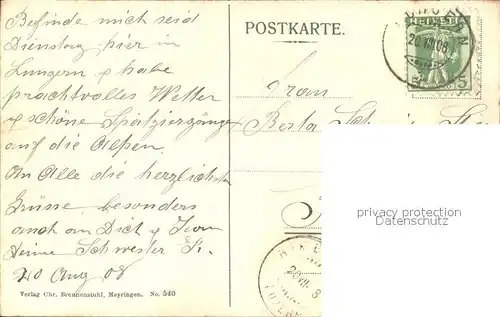 Befinde mich seid
Dienstag hier in
Lungern u habe
prachtvolles Wetter
u schöne Spatziergänge
auf die Alpen.
An Alle die herzlichst
Grüsse besonders
auch an Dich u
Deine Schwester
20 Aug 08
Verlag Chr. Brennenstuhl, Meyringen. No. 540
POSTKARTE.
HELVETIA
5
20.VIII.08
Frau
Berta
privacy protection
Datenschutz